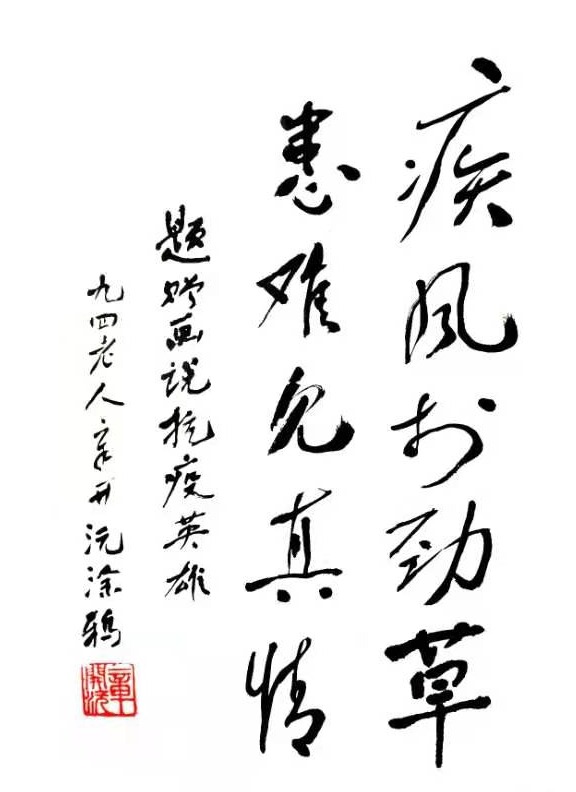 疾风知劲草
患难见真情
题赠画说抗疫英雄
九四老人章开沅涂鸦
章開沅